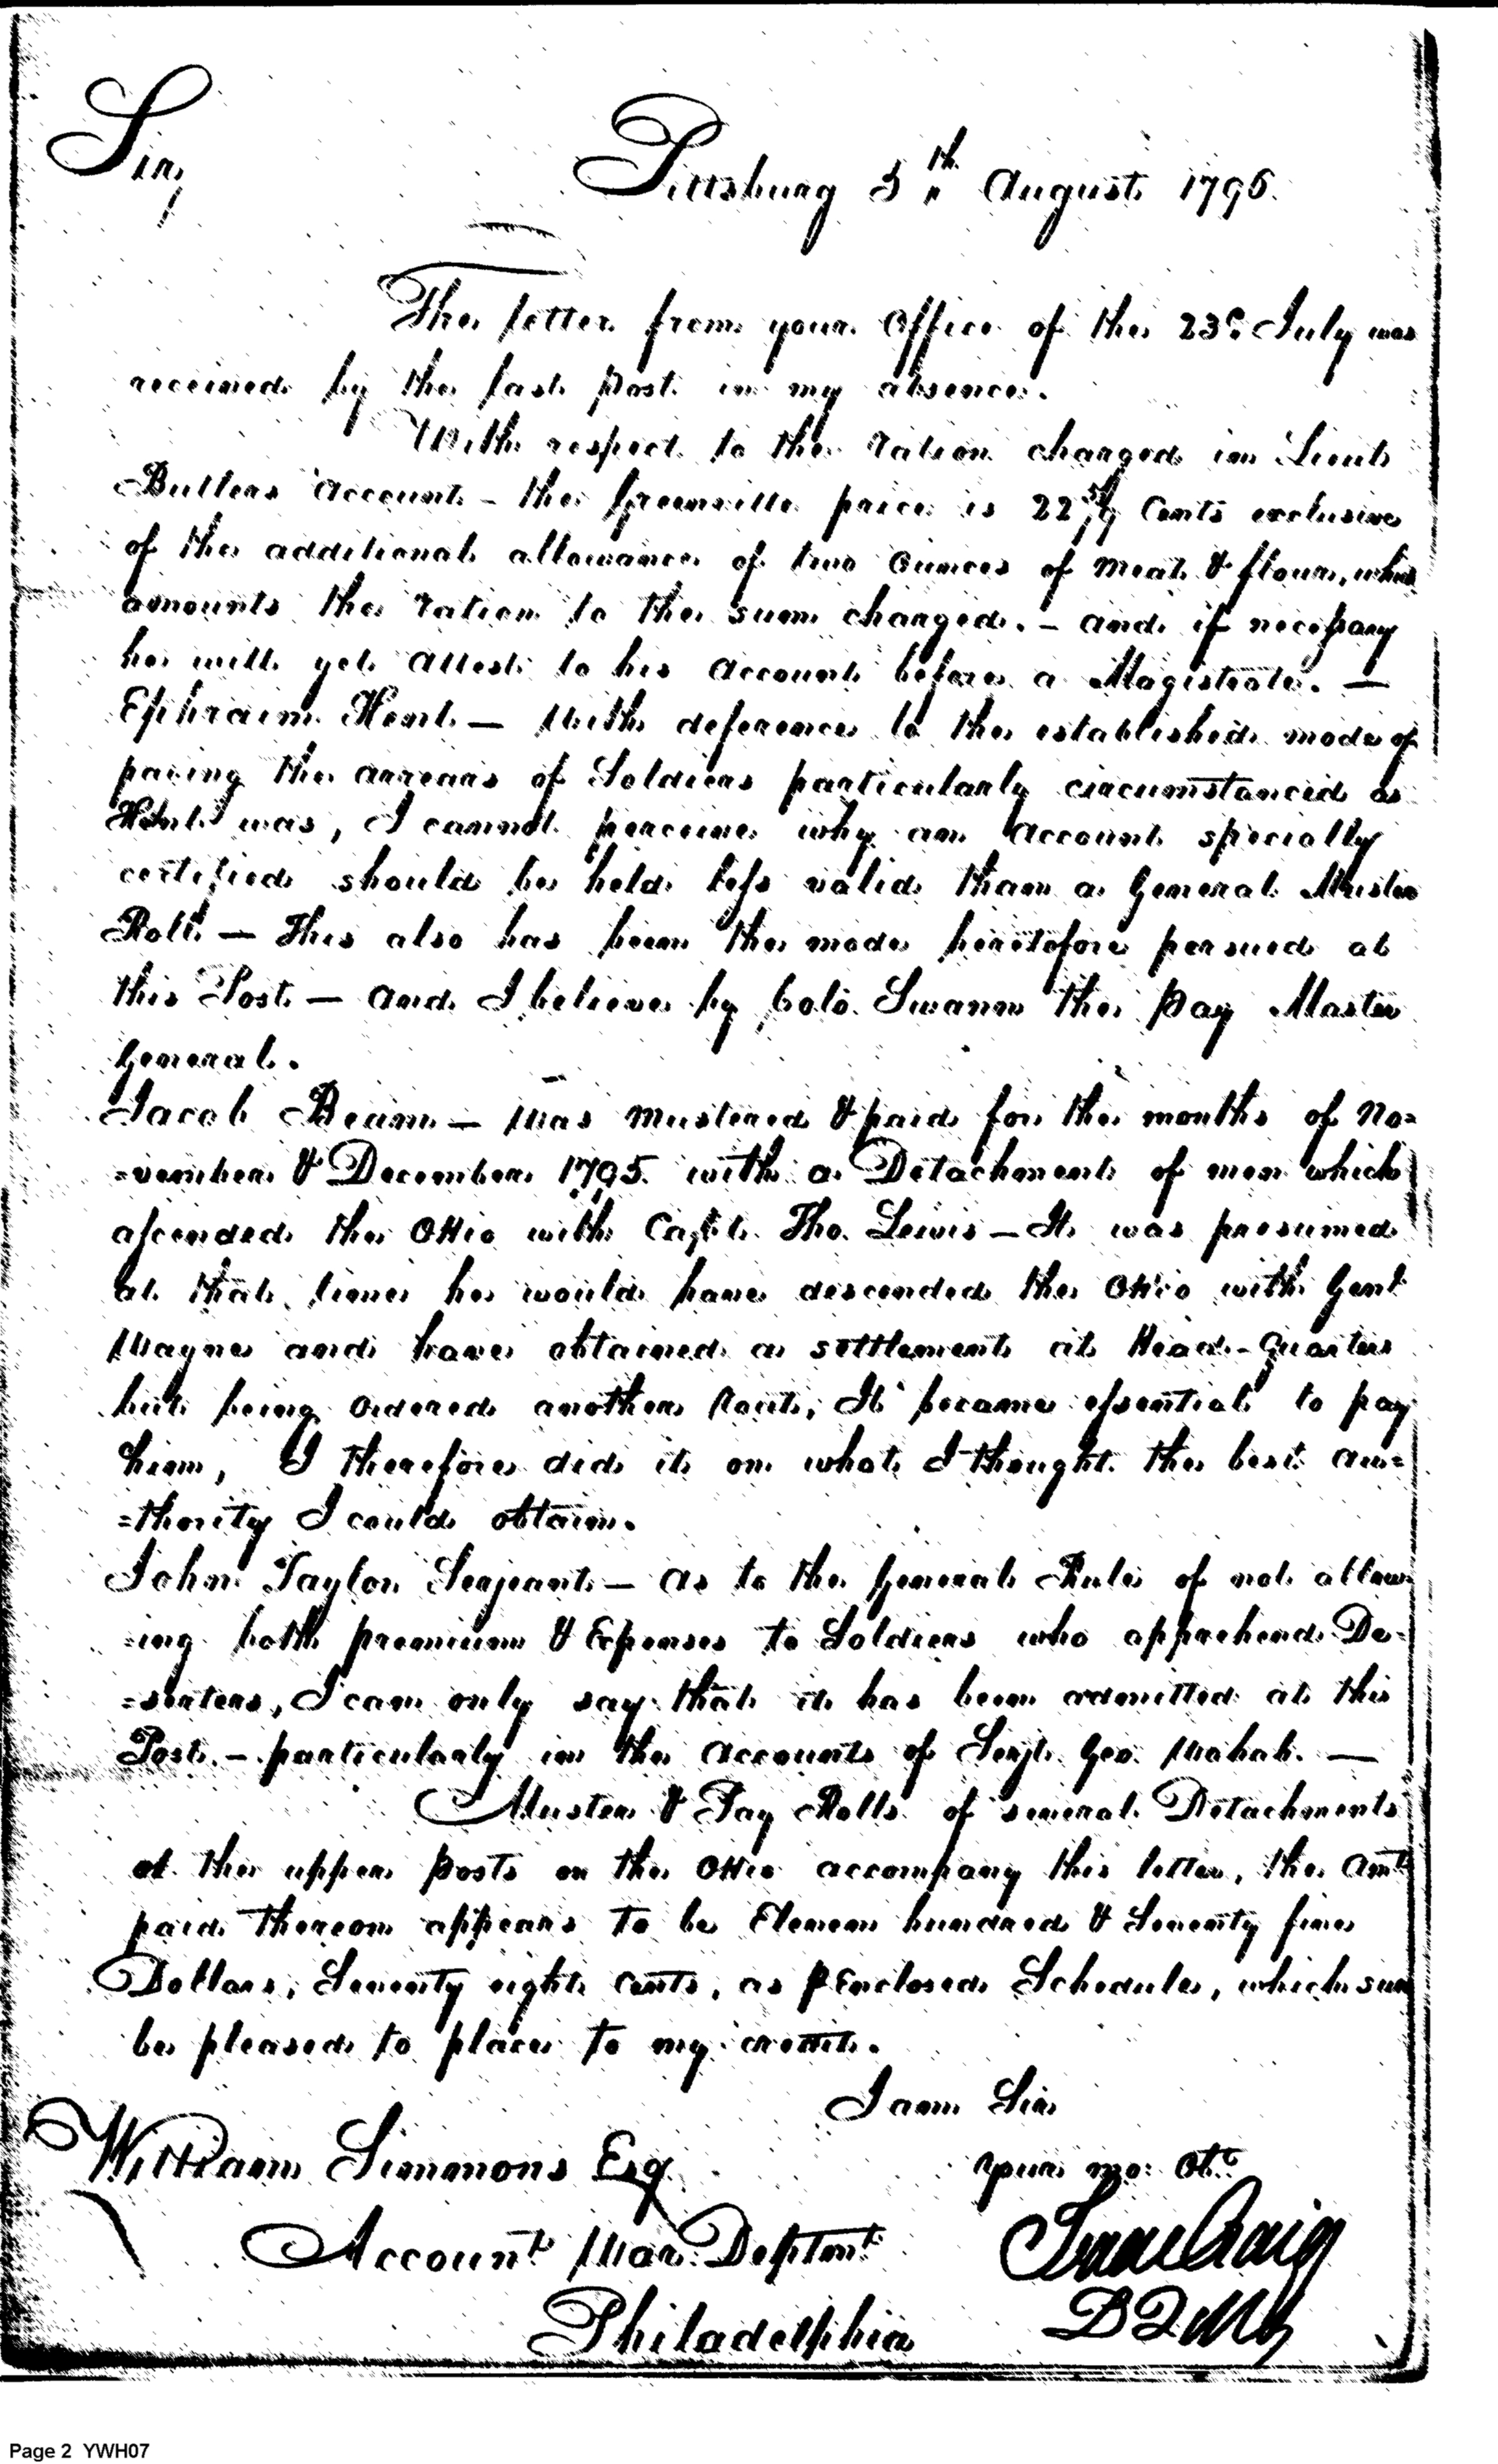 Sir,
Pittsburg 5th August 1796.
The letter from your Office of the 23d July was
received by the last post in my absence.
With respect to the ration charged in Lieut
Butlers account – the Greenville price is 22 5/9 Cents exclusive
of the additional allowance of two ounces of meat & flour, which
amounts the ration to the sum charged. – and if necessary
he will yet attest to his account before a Magistrate. —
Ephraim — With deference to the established mode of
paying the arrears of Soldiers particularly circumstanced as
was, I cannot perceive why an account specially
certified should be held less valid than a General Muster
Roll — This also has been the mode heretofore persued at
this Post — and I believe by Colo. Swann the Pay Master
General.
Jacob Beam — Was mustered & paid for the months of No=
=vember & December 1795 with a Detachment of men which
ascended the Ohio with Capt. Tho. Lewis — It was presumed
at that time he would have descended the Ohio with Genl
Wayne and have obtained a settlement at Head-Quarters
but being ordered another rout, It became essential to pay
him, I therefore did it on what I thought the best au=
=thority I could obtain.
John Taylor Serjeant — as to the General Rule of not allow
=ing both premium & Expenses to Soldiers who apprehend De=
=serters, I can only say that it has been admitted at this
Post. – particularly in the accounts of Serjt. Geo. —
Muster & Pay Rolls of several Detachments
at the upper posts on the Ohio accompany this letter, the Amt
paid thereon appears to be Eleven hundred & Seventy five
Dollars, Seventy eight cents, as P Enclosed Schedule, which sum
be pleased to place to my credit.
I am Sir
William Simmons Esq
your mo: Ob.
Accountt War Deptmt
Isaac Craig
Philadelphia
D Q M G
Page 2 YWH07